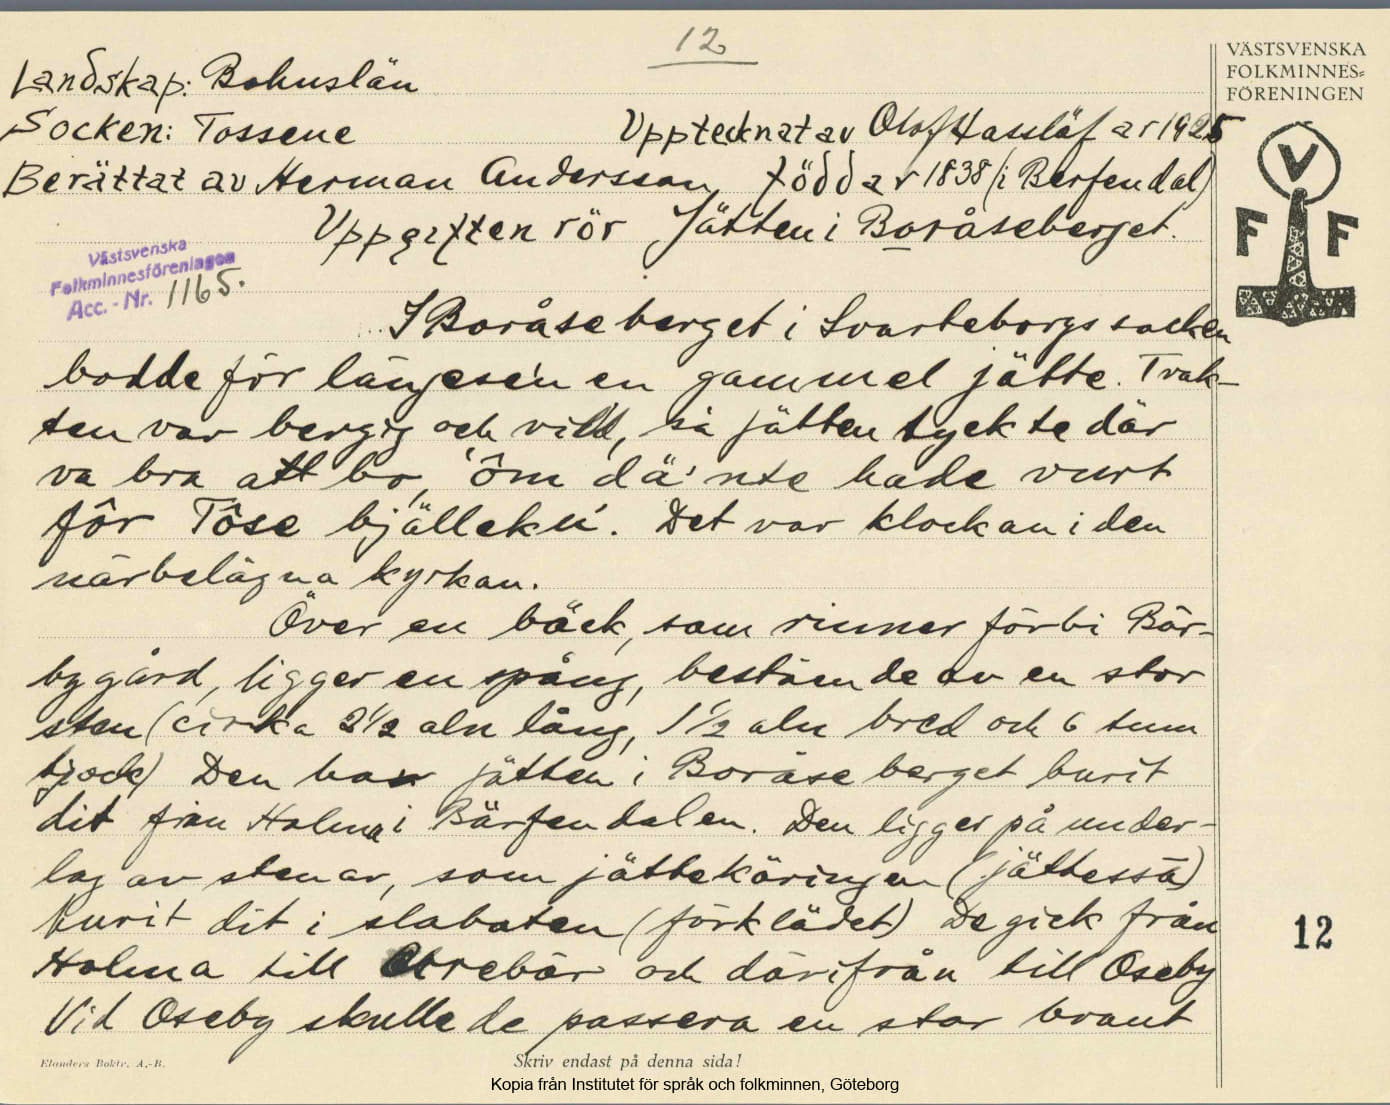 12
VÄSTSVENSKA
FOLKMINNES-
FÖRENINGEN
Landskap: Bohuslän
Socken: Tossene
Upptecknat av Olof Hasslöf år 1925
Berättat av Herman Andersson, född år 1838 (i Berfendal)
Uppgiften rör Jätten i Boråseberget.
V
F F
Västsvenska
Folkminnesföreningen
Acc.-Nr. 1165.
I Boråseberget i Svarteborgs socken
bodde för längese'n en gammel jätte. Trak-
ten var bergig och vild, så jätten tyckte där
va bra att bo, 'ôm dä' nte hade vurt
fôr Tôse bjälleku'. Det var klockan i den
närbelägna kyrkan.
Över en bäck, som rinner förbi Bär-
bygård, ligger en spång, bestående av en stor
sten (cirka 2 1/2 aln lång, 1 1/2 aln bred och 6 tum
tjock) Den har jätten i Boråseberget burit
dit från Holma i Bärfendalen. Den ligger på under-
lag av stenar, som jättekäringen (jättessa)
burit dit i slabaten (förklädet) De gick från
Holma till och därifrån till Oseby
Vid Oseby skulle de passera en stor brant
12
Elanders Boktr. A.-B.
Skriv endast på denna sida!
Kopia från Institutet för språk och folkminnen, Göteborg